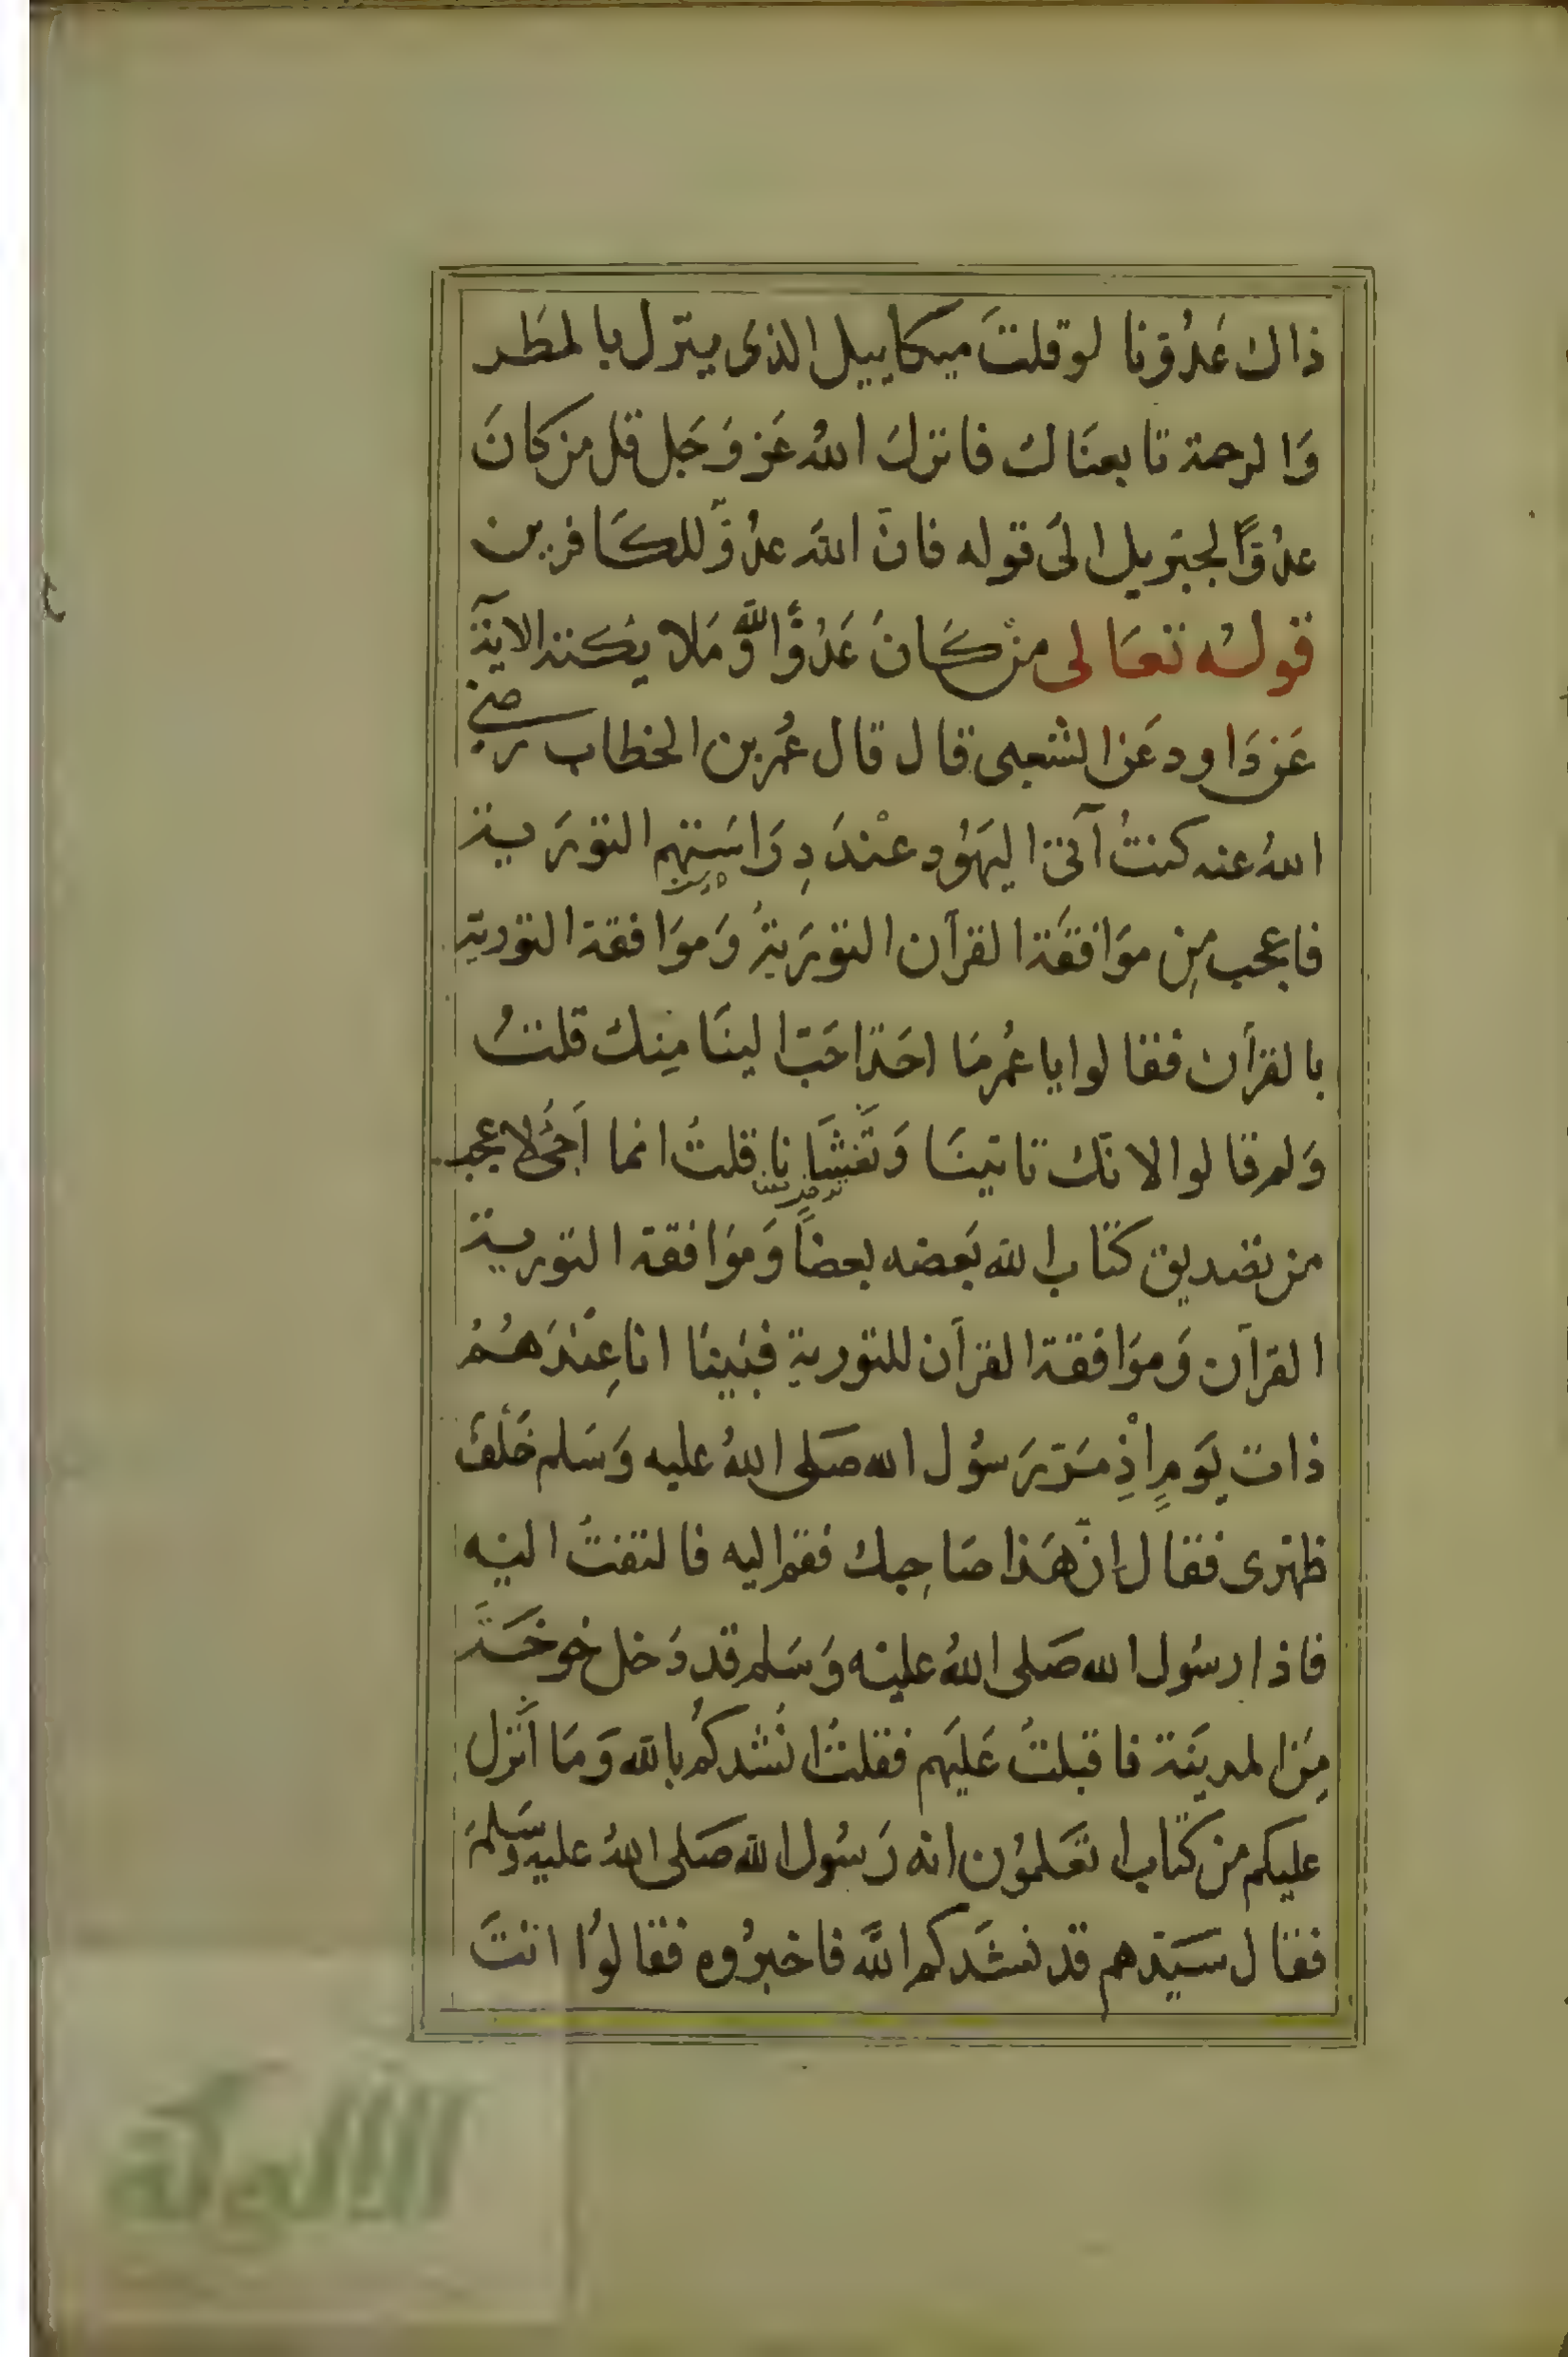 ذاك عَدُوّنا لو قلتَ ميكاييل الذى ينزل بالمطر
وَالرحمة تابعنَاك فانزلَ اللهُ عَز وَجَل قل من كانَ
عدُوًّا لجبريل الَى قوله فانّ اللهَ عدُوّ للكَافرين
قولُه تعَالى منْ كَانَ عَدُوًّا للهِ وَمَلايكته الآيَة
عَن دَاود عَن الشعبى قال قال عُمر بن الخطاب رضى
اللهُ عنه كنتُ آتى اليهَوُد عنْدَ دِرَاسَتهم التورَية
فاعجب مِن موَافقَة القرآن التورَيةَ وَموَافقة التورية
بالقرآن فقالوا يا عُمر مَا احَدٌ احَبّ الينَا مِنك قلتُ
وَلم قالوا لانّك تاتينَا وَتَغْشَانا قلتُ انما اَجئُ لاعجب
من تصديق كتاب الله بَعضه بعضًا وَموَافقة التورية
القرآن وَموَافقة القرآن للتورية فبَينَا انا عِنْدَهُمُ
ذات يَومٍ اذْ مَرّ رَسُول الله صَلى اللهُ عليه وَسَلم خَلْفَ
ظهرى فقال اِنّ هَذا صَاحِبك فقم اليه فالتفتُ اليْه
فاذا رسُول الله صَلى اللهُ عليْه وَسَلم قد دَخل خوخَةً
مِنَ المدينَة فاقبلتُ عَليَهم فقلتُ انْشدكُم بالله وَمَا انْزل
عليكم من كتاب اتعَلموُن انه رَسُول الله صَلى اللهُ عليه وَسَلمَ
فقال سَيّدهم قد نشَدكم اللهَ فاخبرُوه فقالوُا انتَ
الألوكة